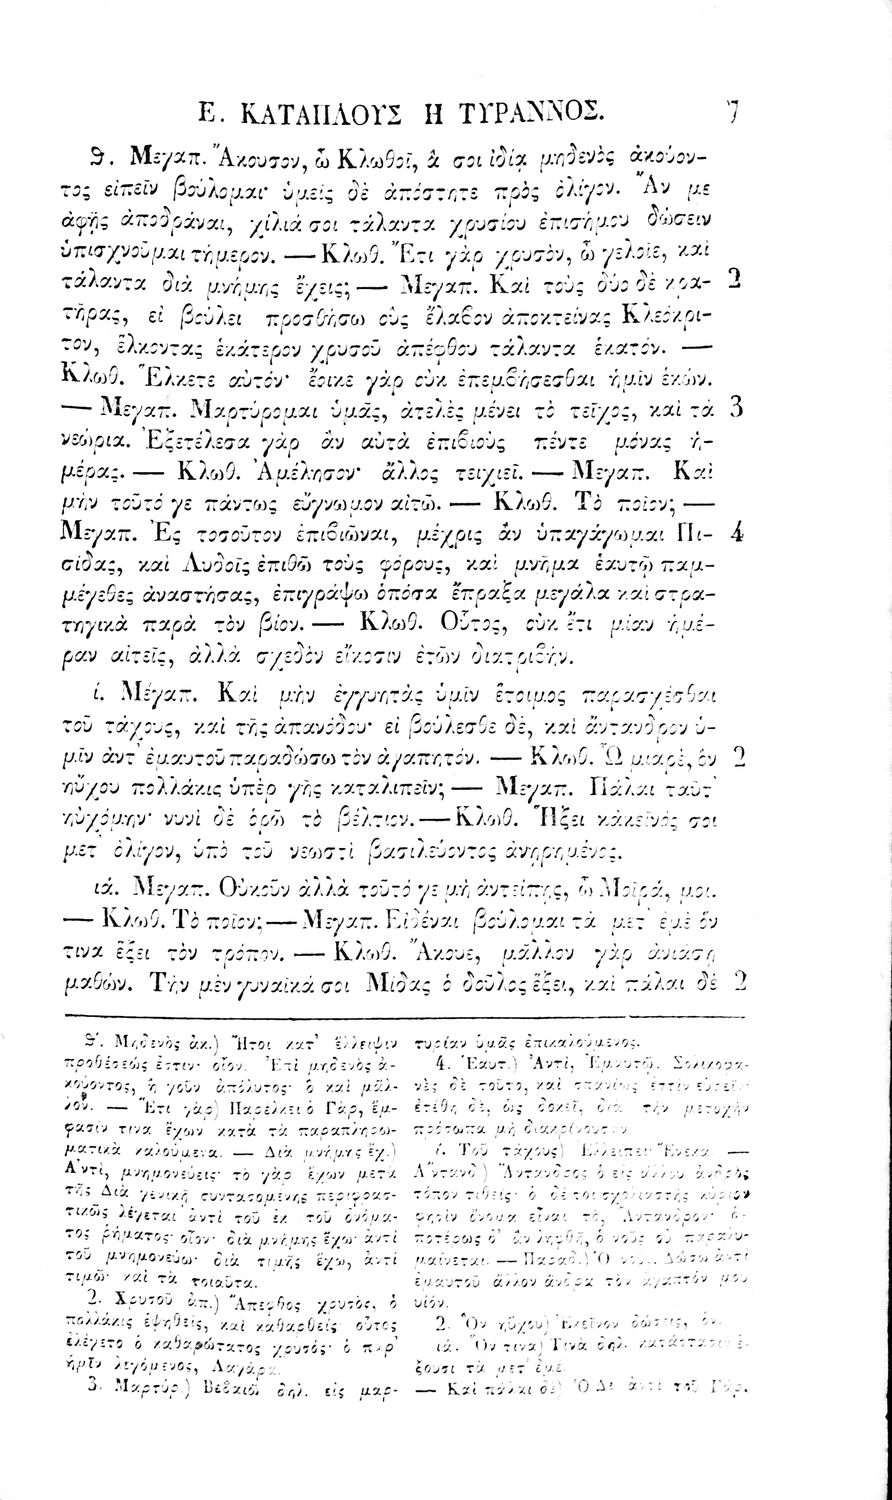 Ε. ΚΑΤΑΠΛΟΥΣ Η ΤΥΡΑΝΝΟΣ. 7
θ. Μεγαπ. Ἄκουσον, ὦ Κλωθοῖ, ἅ σοι ἰδίᾳ μηδενὸς ἀκούον-
τος εἰπεῖν βούλομαι· ὑμεῖς δὲ ἀπόστητε πρὸς ὀλίγον. Ἄν με
ἀφῇς ἀποδράναι, χίλιά σοι τάλαντα χρυσίου ἐπισήμου δώσειν
ὑπισχνοῦμαι τήμερον. — Κλωθ. Ἔτι γὰρ χρυσὸν, ὦ γελοῖε, καὶ
τάλαντα διὰ μνήμης ἔχεις; — Μεγαπ. Καὶ τοὺς δύο δὲ κρα- 2
τῆρας, εἰ βούλει προσθήσω οὓς ἔλαβον ἀποκτείνας Κλεόκρι-
τον, ἕλκοντας ἑκάτερον χρυσοῦ ἀπέφθου τάλαντα ἑκατόν. —
Κλωθ. Ἕλκετε αὐτόν· ἔοικε γὰρ οὐκ ἐπεμβήσεσθαι ἡμῖν ἑκών.
— Μεγαπ. Μαρτύρομαι ὑμᾶς, ἀτελὲς μένει τὸ τεῖχος, καὶ τὰ 3
νεώρια. Ἐξετέλεσα γὰρ ἂν αὐτὰ ἐπιβιοὺς πέντε μόνας ἡ-
μέρας. — Κλωθ. Ἀμέλησον· ἄλλος τειχιεῖ. — Μεγαπ. Καὶ
μὴν τοῦτό γε πάντως εὔγνωμον αἰτῶ. — Κλωθ. Τὸ ποῖον; —
Μεγαπ. Ἐς τοσοῦτον ἐπιβιῶναι, μέχρις ἂν ὑπαγάγωμαι Πι- 4
σίδας, καὶ Λυδοῖς ἐπιθῶ τοὺς φόρους, καὶ μνῆμα ἑαυτῷ παμ-
μέγεθες ἀναστήσας, ἐπιγράψω ὁπόσα ἔπραξα μεγάλα καὶ στρα-
τηγικὰ παρὰ τὸν βίον. — Κλωθ. Οὗτος, οὐκ ἔτι μίαν ἡμέ-
ραν αἰτεῖς, ἀλλὰ σχεδὸν εἴκοσιν ἐτῶν διατριβήν.
ί. Μέγαπ. Καὶ μὴν ἐγγυητὰς ὑμῖν ἕτοιμος παρασχέσθαι
τοῦ τάχους, καὶ τῆς ἀπανόδου· εἰ βούλεσθε δὲ, καὶ ἄντανδρον ὑ-
μῖν ἀντ' ἐμαυτοῦ παραδώσω τὸν ἀγαπητόν. — Κλωθ. Ὦ μιαρὲ, ὃν 2
ηὔχου πολλάκις ὑπὲρ γῆς καταλιπεῖν; — Μεγαπ. Πάλαι ταῦτ'
ηὐχόμην· νυνὶ δὲ ὁρῶ τὸ βέλτιον. — Κλωθ. Ἥξει κἀκεῖνός σοι
μετ' ὀλίγον, ὑπὸ τοῦ νεωστὶ βασιλεύοντος ἀνῃρημένος.
ιά. Μεγαπ. Οὐκοῦν ἀλλὰ τοῦτό γε μὴ ἀντείπῃς, ὦ Μοῖρά, μοι.
— Κλωθ. Τὸ ποῖον; — Μεγαπ. Εἰδέναι βούλομαι τὰ μετ' ἐμὲ ὅν
τινα ἕξει τὸν τρόπον. — Κλωθ. Ἄκουε, μᾶλλον γὰρ ἀνιάσῃ
μαθών. Τὴν μὲν γυναῖκά σοι Μίδας ὁ δοῦλος ἕξει, καὶ πάλαι δὲ 2
θ'. Μηδενὸς ἀκ.) Ἤτοι κατ' ἔλλειψιν
προθέσεώς ἐστιν· οἷον. Ἐπὶ μηδενὸς ἀ-
κούοντος, ἢ γοῦν ἀπόλυτος· ὃ καὶ μᾶλ-
λον. — Ἔτι γὰρ) Παρέλκει ὁ Γὰρ, ἔμ-
φασίν τινα ἔχων κατὰ τὰ παραπληρω-
ματικὰ καλούμενα. — Διὰ μνήμης ἔχ.)
Ἀντὶ, μνημονεύεις· τὸ γὰρ ἔχων μετὰ
τῆς Διὰ γενικῇ συντασσομένης περιφρασ-
τικῶς λέγεται ἀντὶ τοῦ ἐκ τοῦ ὀνόμα-
τος ῥήματος· οἷον· διὰ μνήμης ἔχω· ἀντὶ
τοῦ μνημονεύω· διὰ τιμῆς ἔχω, ἀντὶ
τιμῶ· καὶ τὰ τοιαῦτα.
2. Χρυσοῦ ἀπ.) Ἄπεφθος χρυσὸς, ὁ
πολλάκις ἑψηθεὶς, καὶ καθαρθείς· οὕτως
ἐλέγετο ὁ καθαρώτατος χρυσός· ὁ παρ'
ἡμῖν λεγόμενος, Λαγάρα.
3. Μαρτύρ.) Βεβαιοῖ δηλ. εἰς μαρ-
τυρίαν ὑμᾶς ἐπικαλούμενος.
4. Ἑαυτ.) Ἀντὶ, Ἐμαυτῷ. Σολικοφα-
νὲς δὲ τοῦτο, καὶ σπανίως ἐστὶν εὑρεῖν·
ἐτέθη δὲ, ὡς δοκεῖ, διὰ τὴν μετοχὴν
πρόσωπα μὴ διακρίνουσαν.
ί. Τοῦ τάχους) Ἐλλείπει Ἕνεκα. —
Ἄντανδ.) Ἄντανδρος ὁ εἰς ἄλλου ἀνδρὸς
τόπον τιθείς· ὁ δέ τοι σχολιαστὴς κύριον
φησὶν ὄνομα εἶναι τὸ, Ἄντανδρον· ὁ-
ποτέρως δ' ἂν ληφθῇ, ὁ νοῦς οὐ παραλυ-
μαίνεται. — Παραδ.) Ὁ νοῦς. Δώσω ἀντὶ
ἐμαυτοῦ ἄλλον ἄνδρα τὸν ἀγαπτόν μου
υἱόν.
2. Ὃν ηὔχου) Ἐκεῖνον δώσεις, ὃν.
ιά. Ὅν τινα) Τινὰ δηλ. κατάστασιν ἕ-
ξουσι τὰ μετ' ἐμέ.
— Καὶ πάλαι δὲ) Ὁ Δὲ ἀντὶ τοῦ Γάρ.